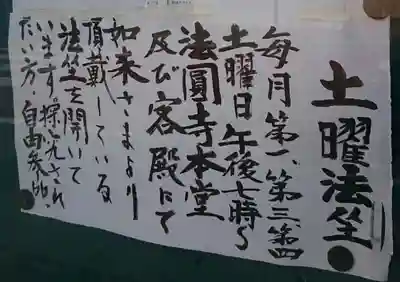 土曜法坐
毎月第一、第三、第四
土曜日午後七時〜
法圓寺本堂
及び客殿にて
如来さまより
頂戴している
法坐を開いて
います。探究され
たい方・自由参加。